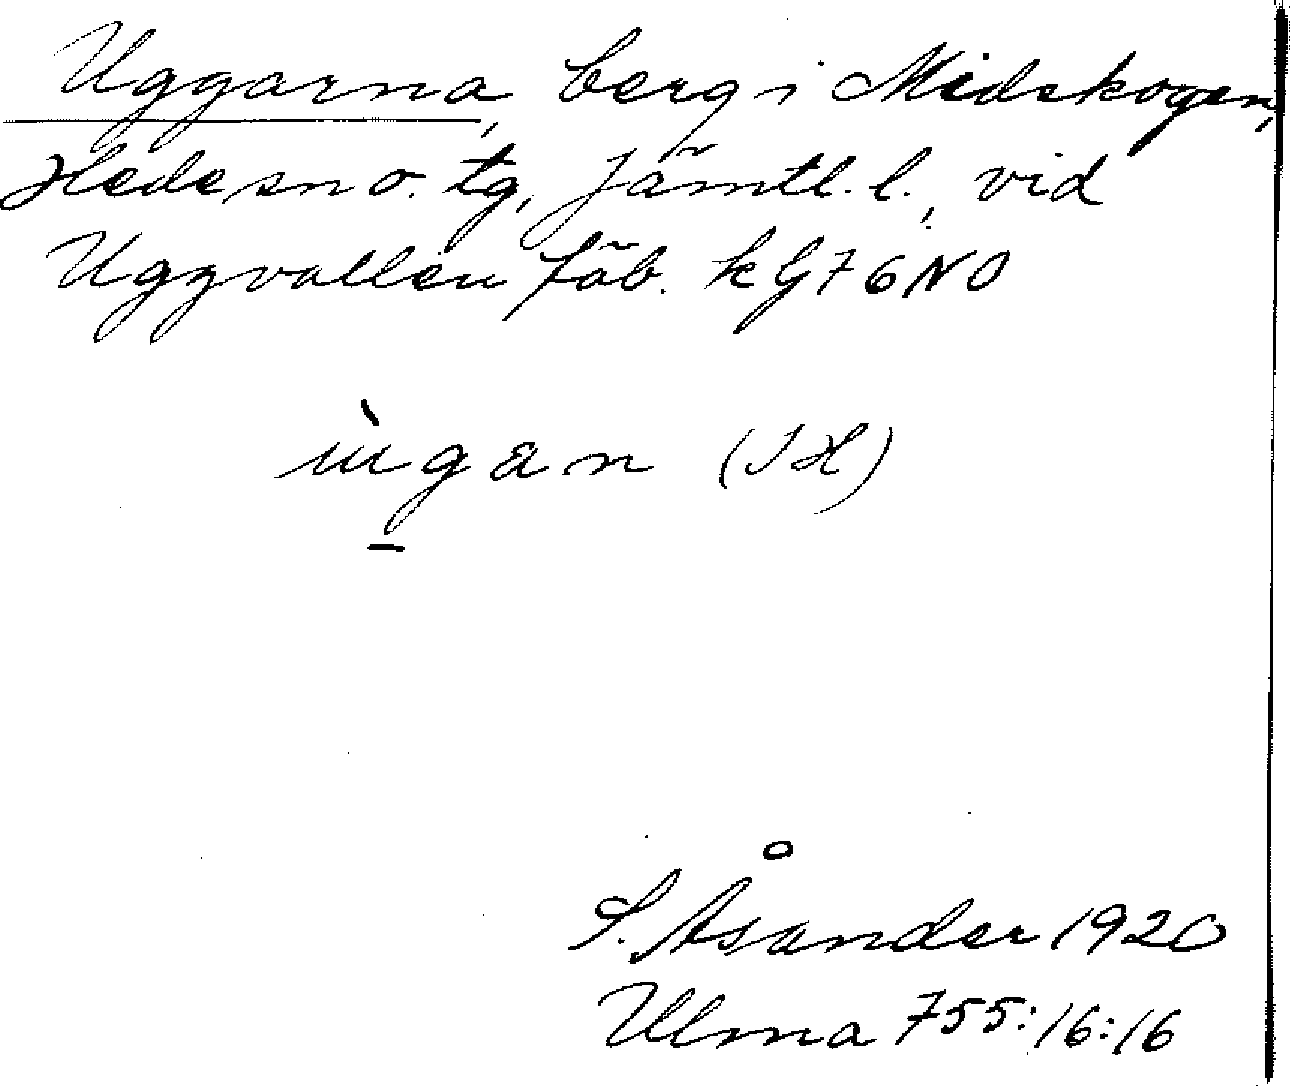 Uggarna, berg i Midskogen,
Hede sn o. tg, Jämtl. l., vid
Uggvallen fäb. kG76NO
ùgan (JH)
S. Åsander 1920
Ulma 755:16:16